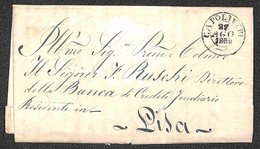 CAPOLIVERI
27
AGO
18
All'Illmo Sig. Prone Colmo
Il Signor F. Ruschi Direttore
della Banca di Credito Fondiario
Residente in
Pisa